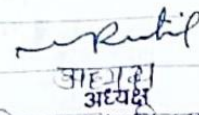 अध्यक्ष
अध्यक्ष